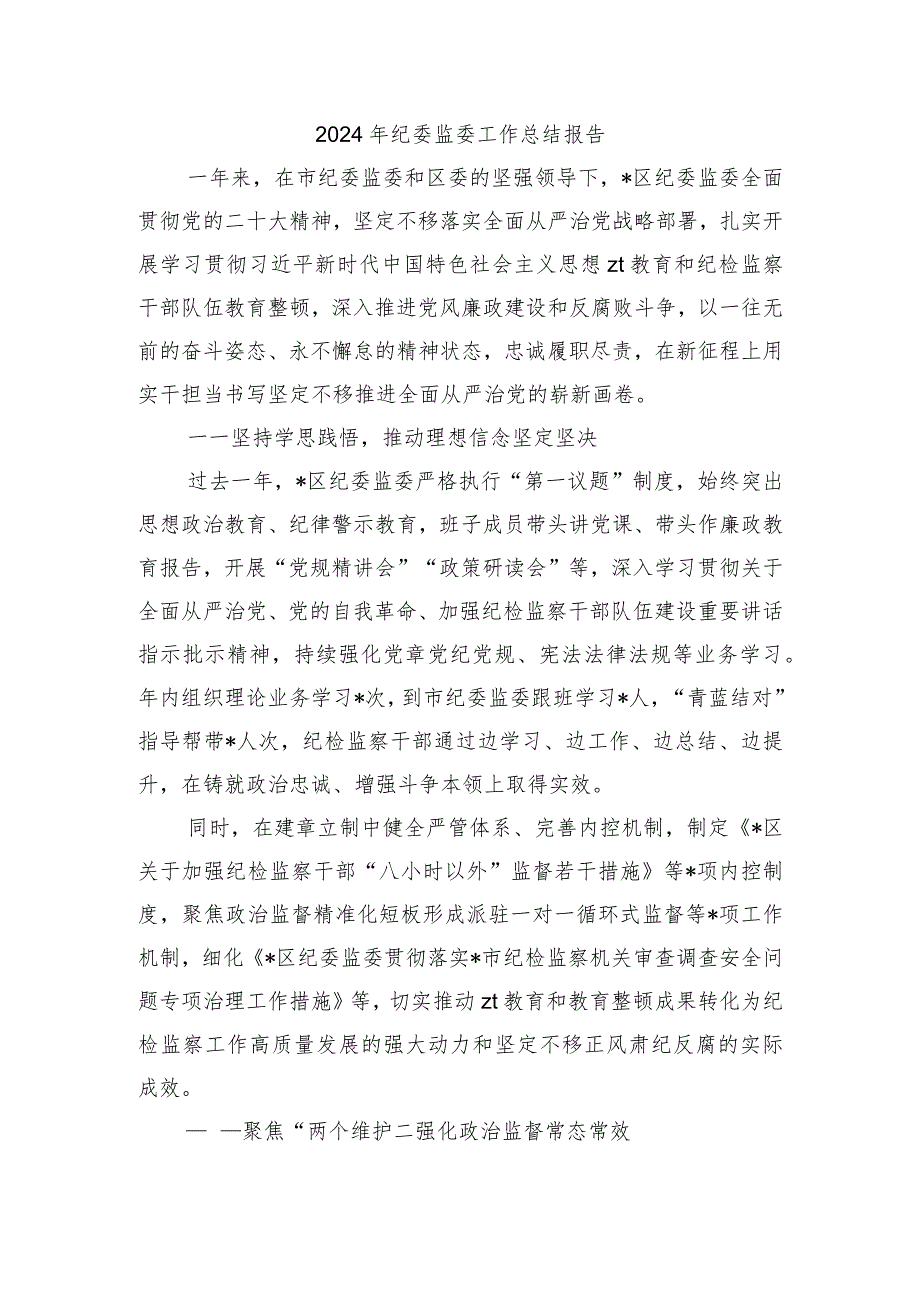 2024 年纪委监委工作总结报告
一年来，在市纪委监委和区委的坚强领导下，*区纪委监委全面
贯彻党的二十大精神，坚定不移落实全面从严治党战略部署，扎实开
展学习贯彻习近平新时代中国特色社会主义思想 zt 教育和纪检监察
干部队伍教育整顿，深入推进党风廉政建设和反腐败斗争，以一往无
前的奋斗姿态、永不懈怠的精神状态，忠诚履职尽责，在新征程上用
实干担当书写坚定不移推进全面从严治党的崭新画卷。
一一坚持学思践悟，推动理想信念坚定坚决
过去一年，*区纪委监委严格执行“第一议题”制度，始终突出
思想政治教育、纪律警示教育，班子成员带头讲党课、带头作廉政教
育报告，开展“党规精讲会”“政策研读会”等，深入学习贯彻关于
全面从严治党、党的自我革命、加强纪检监察干部队伍建设重要讲话
指示批示精神，持续强化党章党纪党规、宪法法律法规等业务学习。
年内组织理论业务学习*次，到市纪委监委跟班学习*人，“青蓝结对”
指导帮带*人次，纪检监察干部通过边学习、边工作、边总结、边提
升，在铸就政治忠诚、增强斗争本领上取得实效。
同时，在建章立制中健全严管体系、完善内控机制，制定《*区
关于加强纪检监察干部“八小时以外”监督若干措施》等*项内控制
度，聚焦政治监督精准化短板形成派驻一对一循环式监督等*项工作
机制，细化《*区纪委监委贯彻落实*市纪检监察机关审查调查安全问
题专项治理工作措施》等，切实推动 zt 教育和教育整顿成果转化为纪
检监察工作高质量发展的强大动力和坚定不移正风肃纪反腐的实际
成效。
— —聚焦“两个维护二强化政治监督常态常效